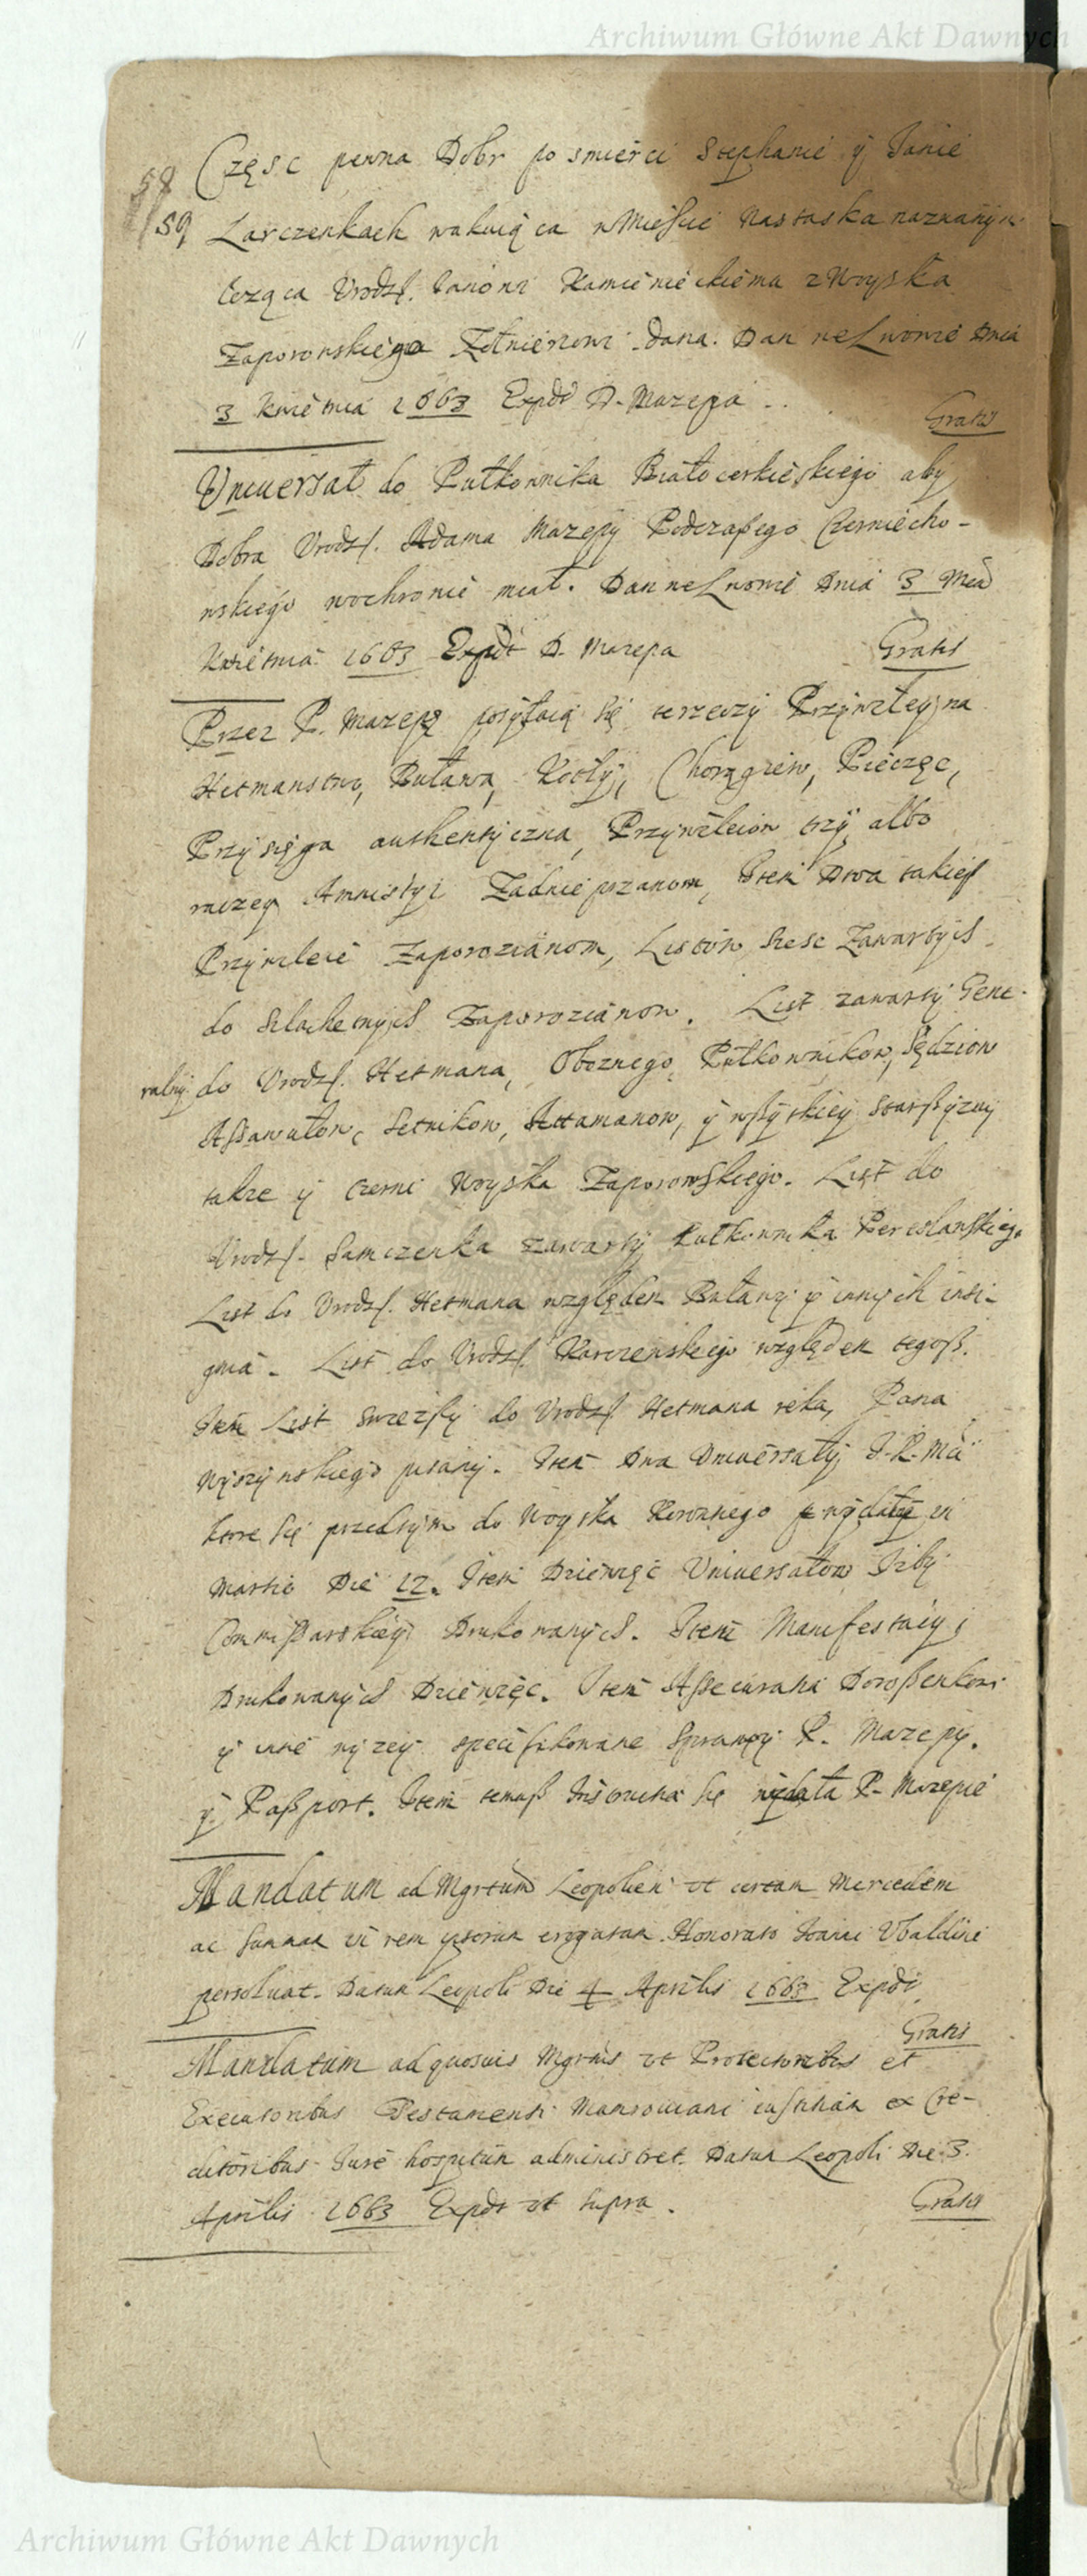 Archiwum Główne Akt Dawnych
58 Częsc pewna Dobr po smierci Stephanie y Janie
59 Larczenkach wakuiąca w Mieście Nastaska nazwanym
leząca Vrodz. Janowi Kamienieckiemu z Woyska
Zaporowskiego Zołnierzowi dana. Dan we Lwowie Dnia
3 Kwietnia 1663 Expdt D. Mazepa
Gratis
Vniuersał do Pułkownika Białocerkiewskiego aby
Dobra Vrodz. Adama Mazepy Podczaßego Czerniecho-
wskiego wochronie miał. Dan we Lwowie Dnia 3 Mca
Kwietnia 1663 Expdt D. Mazepa Gratis
Przez P. Mazepę posyłaią się te rzeczy Przywiley na
Hetmanstwo, Buława, Kotły, Chorągiew, Pieczęc,
Przysięga authentyczna, Przywileiow trzy albo
raczey Amnistyi Zadnieprzanom, Item Dwa takież
Przywileie Zaporozianom, Listow szesc Zawartych
do szlachetnych Zaporozianow. List zawarty Gene-
ralny do Vrodz. Hetmana, Oboznego, Pułkownikow, Sędziow
Aßawułow, Setnikow, Attamanow, y wßytkiey starßyzny
takze y czerni Woyska Zaporowskiego. List do
Vrodz. Samczenka zawarty Pułkownika Pereslanskiego
List do Vrodz. Hetmana względem Buławy y innych insi-
gnia. List do Vrodz. względem tegoß.
Item List swiezßy do Vrodz Hetmana ręką Pana
Wyszynskiego pisany. Item Dwa Vniuersały J.K.Mci
ktore się przedtym do Woyska Koronnego wydały in
Martio Die 12. Item Dziewięc Vniuersałow Izby
Commißarskiey Drukowanych. Item Manifestacyi
Drukowanych Dziewięc. Item Aßecuratia Doroßenkowi
y inne nizey specifikowane sprawy P. Mazepy.
y Paßport. Item temuß Instructia się wydała P. Mazepie
Mandatum ad Mgrtum Leopolien vt certam Mercedem
ac summam in rem ipsorum erogatam Honorato Ioanni Vbaldini
persoluat. Datum Leopoli Die 4 Aprilis 1663 Expdt
Gratis
Mandatum ad quosuis Mgrtus vt Protectoribus et
Executoribus Testamenti iustitiam ex Cre-
ditoribus Iure hospitum administret. Datum Leopoli Die 3.
Aprilis 1663 Expdt vt supra. Gratis
Archiwum Główne Akt Dawnych